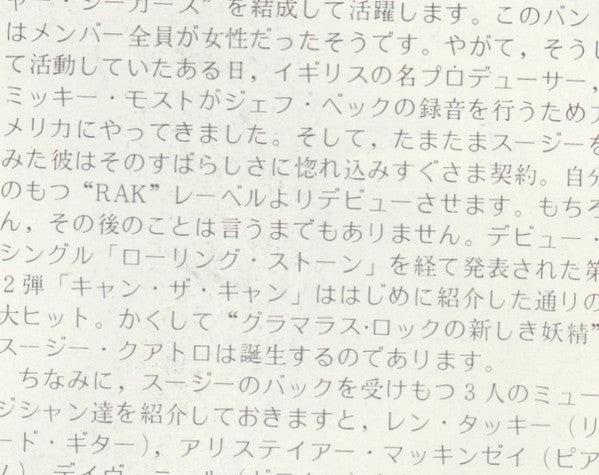 ャー・シーカーズ”を結成して活躍します。このバン
はメンバー全員が女性だったそうです。やがて，そうし
て活動していたある日，イギリスの名プロデューサー，
ミッキー・モストがジェフ・ベックの録音を行うためア
メリカにやってきました。そして，たまたまスージーを
みた彼はそのすばらしさに惚れ込みすぐさま契約。自分
のもつ“RAK”レーベルよりデビューさせます。もちろ
ん，その後のことは言うまでもありません。デビュー・
シングル「ローリング・ストーン」を経て発表された第
2弾「キャン・ザ・ギャン」ははじめに紹介した通りの
大ヒット。かくして“グラマラス・ロックの新しき妖精”
スージー・クアトロは誕生するのであります。
ちなみに，スージーのバックを受けもつ3人のミュー
ジシャン達を紹介しておきますと，レン・タッキー（リ
ード・ギター），アリステイアー・マッキンゼイ（ピア